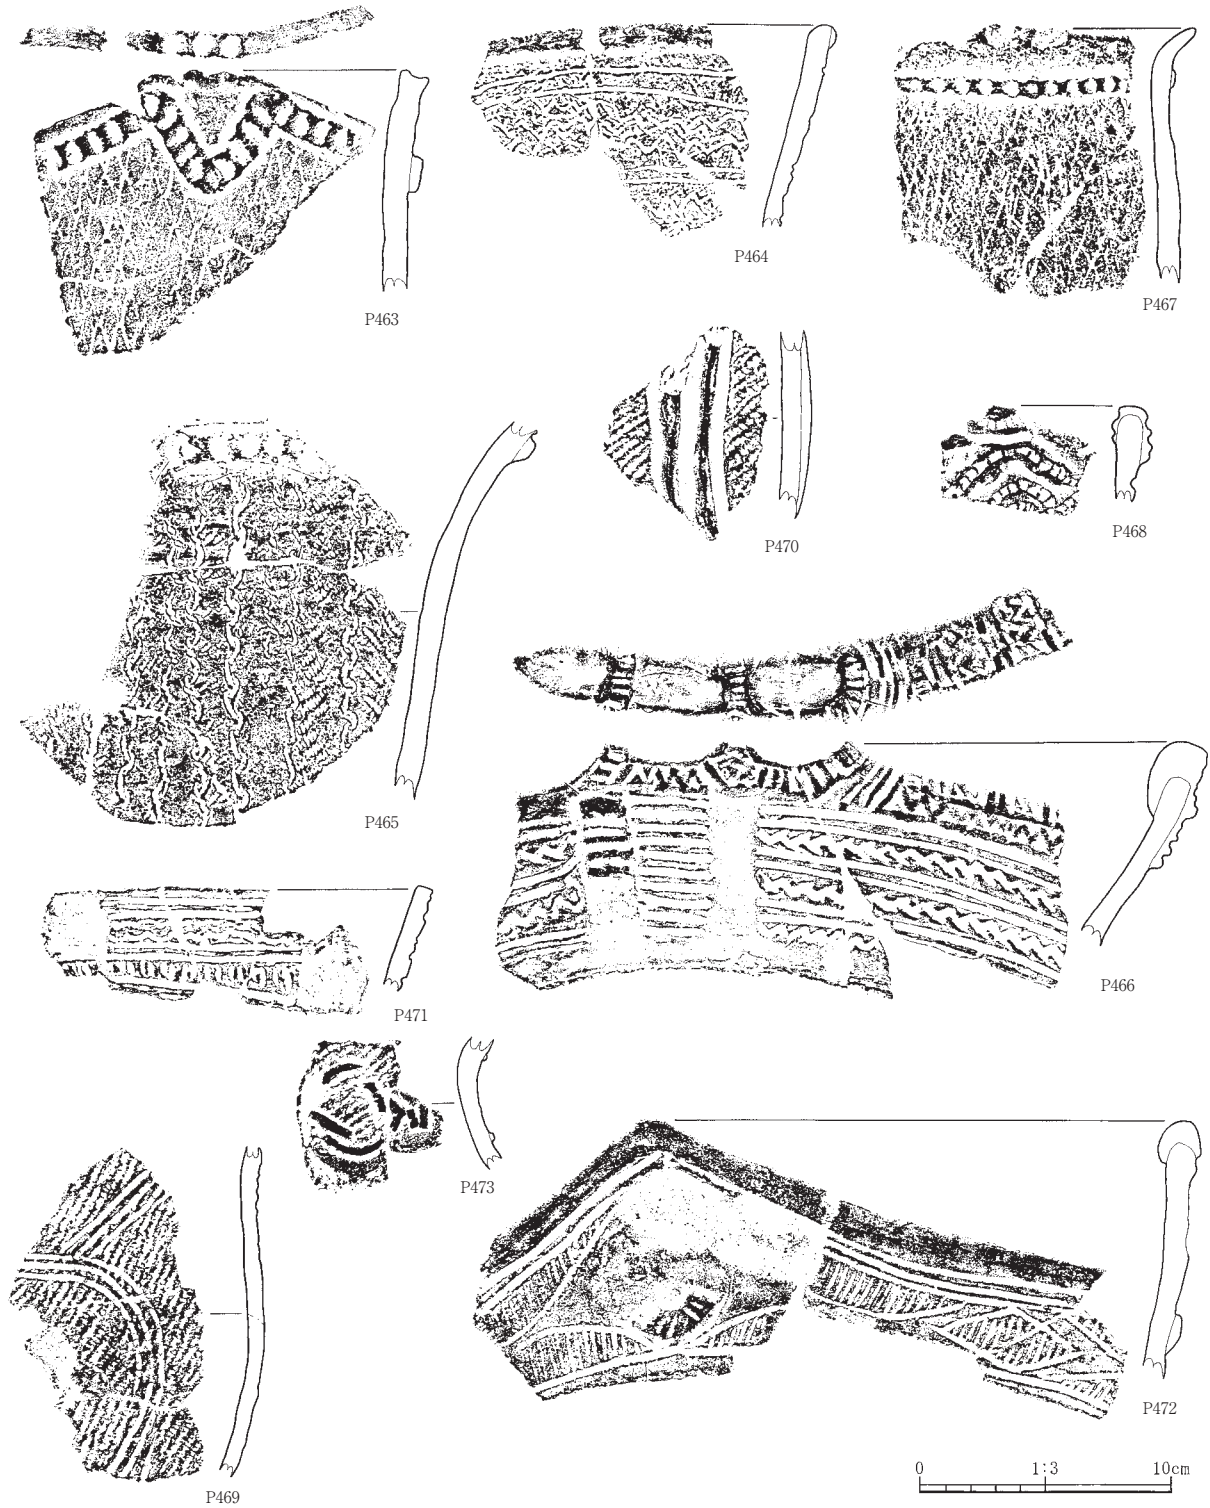 P463
P464
P467
P470
P468
P465
P466
P471
P473
P472
P469
0 1:3 10cm